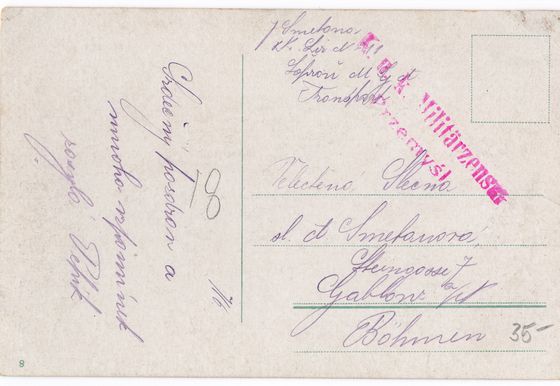 J Smetana
Transport
K. u. k. Militärzensur
Przemyśl
Srdečný pozdrav a
mnoho vzpomínek
zasýlá Pepík
7/6
Velectěná Slečna
sl. A Smetanová
Steingasse 7
Gablonz a/N
Böhmen
35-
8